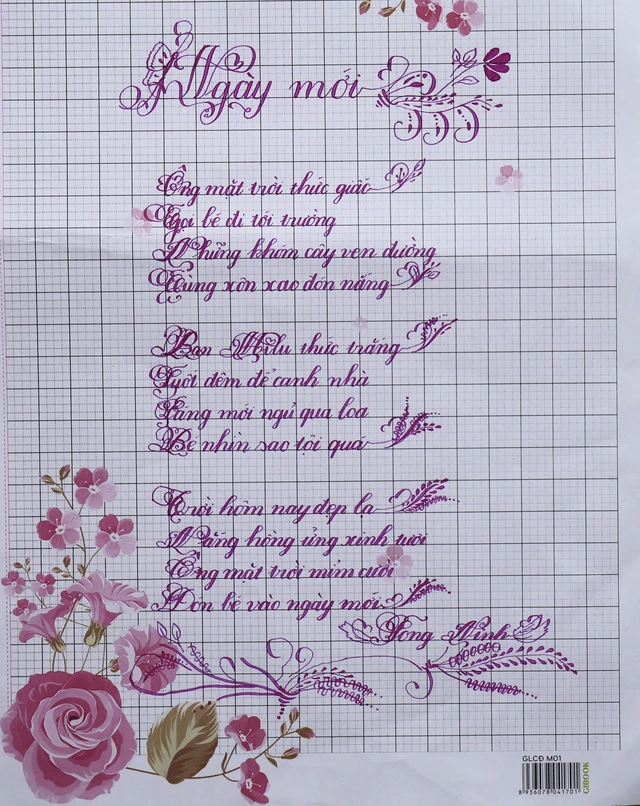 Ngày mới
Ông mặt trời thức giấc
Gọi bé đi tới trường
Những khóm cây ven đường
Cùng xôn xao đón nắng
Bạn Milu thức trắng
Suốt đêm để canh nhà
Sáng mới ngủ qua loa
Bé nhìn sao tội quá
Trời hôm nay đẹp lạ
Nắng hồng ửng xinh tươi
Ông mặt trời mỉm cười
Đón bé vào ngày mới
Tòng Ninh
GLCĐ M01
GIBOOK
8 936078 041701